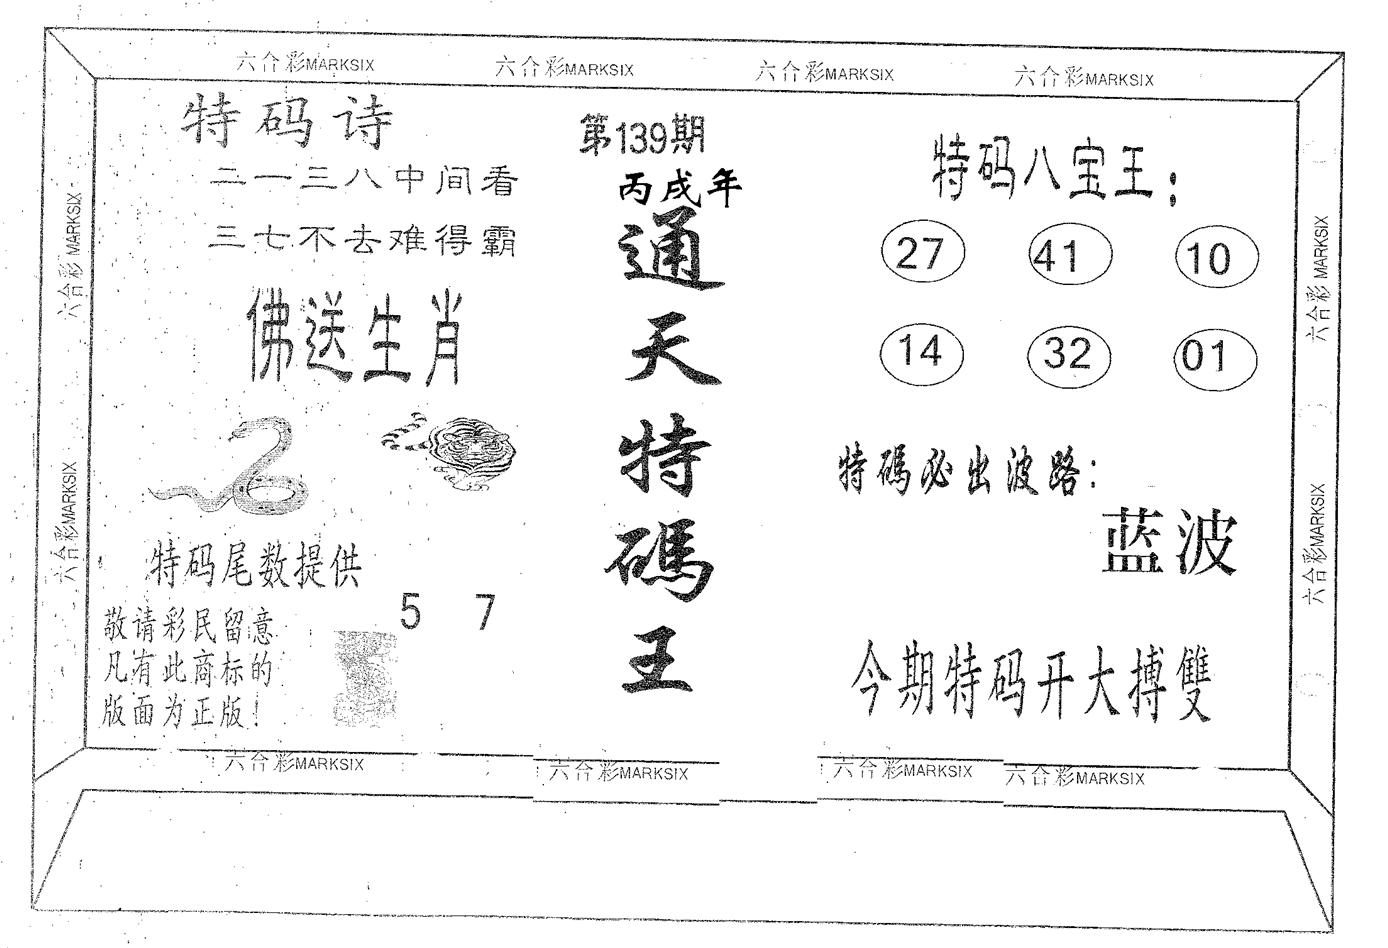 六合彩MARKSIX 六合彩MARKSIX 六合彩MARKSIX 六合彩MARKSIX
特码诗
二一三八中间看
三七不去难得霸
佛送生肖
特码尾数提供
5 7
敬请彩民留意
凡有此商标的
版面为正版！
第139期
丙戌年
通天特碼王
特码八宝王：
27 41 10
14 32 01
特碼必出波路：
蓝波
今期特码开大搏雙
六合彩MARKSIX
六合彩MARKSIX
六合彩MARKSIX
六合彩MARKSIX
六合彩MARKSIX 六合彩MARKSIX 六合彩MARKSIX 六合彩MARKSIX